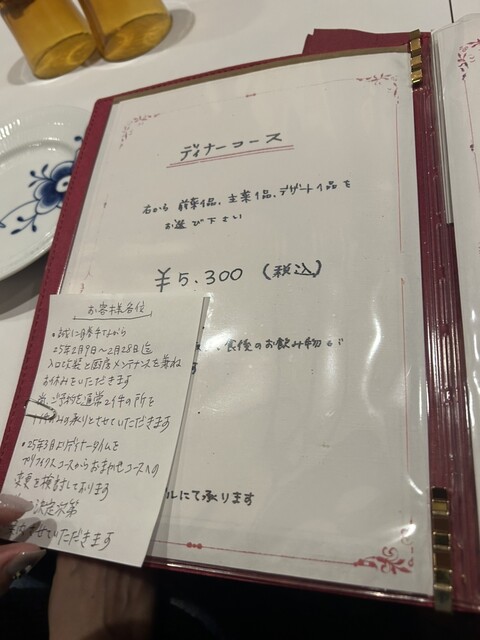 ディナーコース
右から 前菜1品、主菜1品、デザート1品を
お選び下さい
¥5.300 (税込)
、食後のお飲み物が
ルにて承ります
お客様各位
・誠に勝手ながら
25年2月9日〜2月28日迄
入口改装と厨房メンテナンスを兼ね
お休みをいただきます
尚、ご予約を通常2件の所を
のみの承りとさせていただきます
・25年3月よりディナータイムを
プリフィクスコースからおまかせコースへの
変更を検討しております
決定次第
せていただきます